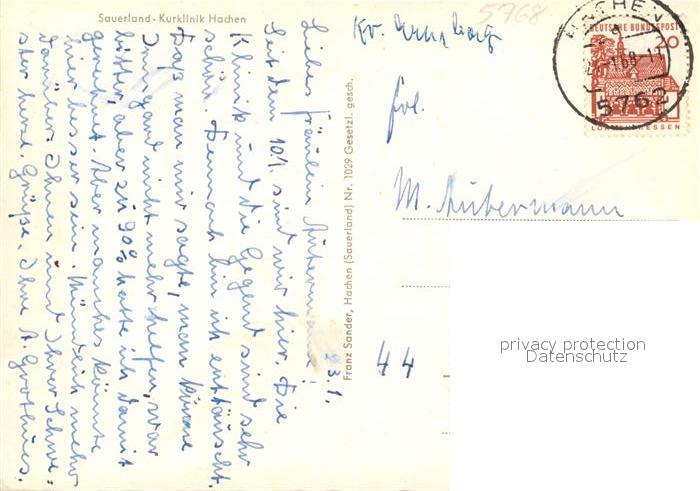 Sauerland - Kurklinik Hachen
23.1.
Liebes Fräulein Autermann!
Seit dem 10.1. sind wir hier. Die
Klinik und die Gegend sind sehr
schön. Dennoch bin ich enttäuscht.
Dass man mir sagte, man könne
Irmgard nicht mehr helfen, war
bitter, aber zu 90% hatte ich damit
gerechnet. Aber manches könnte
hier besser sein. Mündlich mehr
darüber. Ihnen und Ihrer Schwe-
ster herzl. Grüße. Ihre A. Goothues.
Franz Sander, Hachen (Sauerland) Nr. 1029 Gesetzl. gesch.
5768
Kr.
Frl.
M. Autermann
44
DEUTSCHE BUNDESPOST
20
LORSCH/HESSEN
68-17
5762
privacy protection
Datenschutz